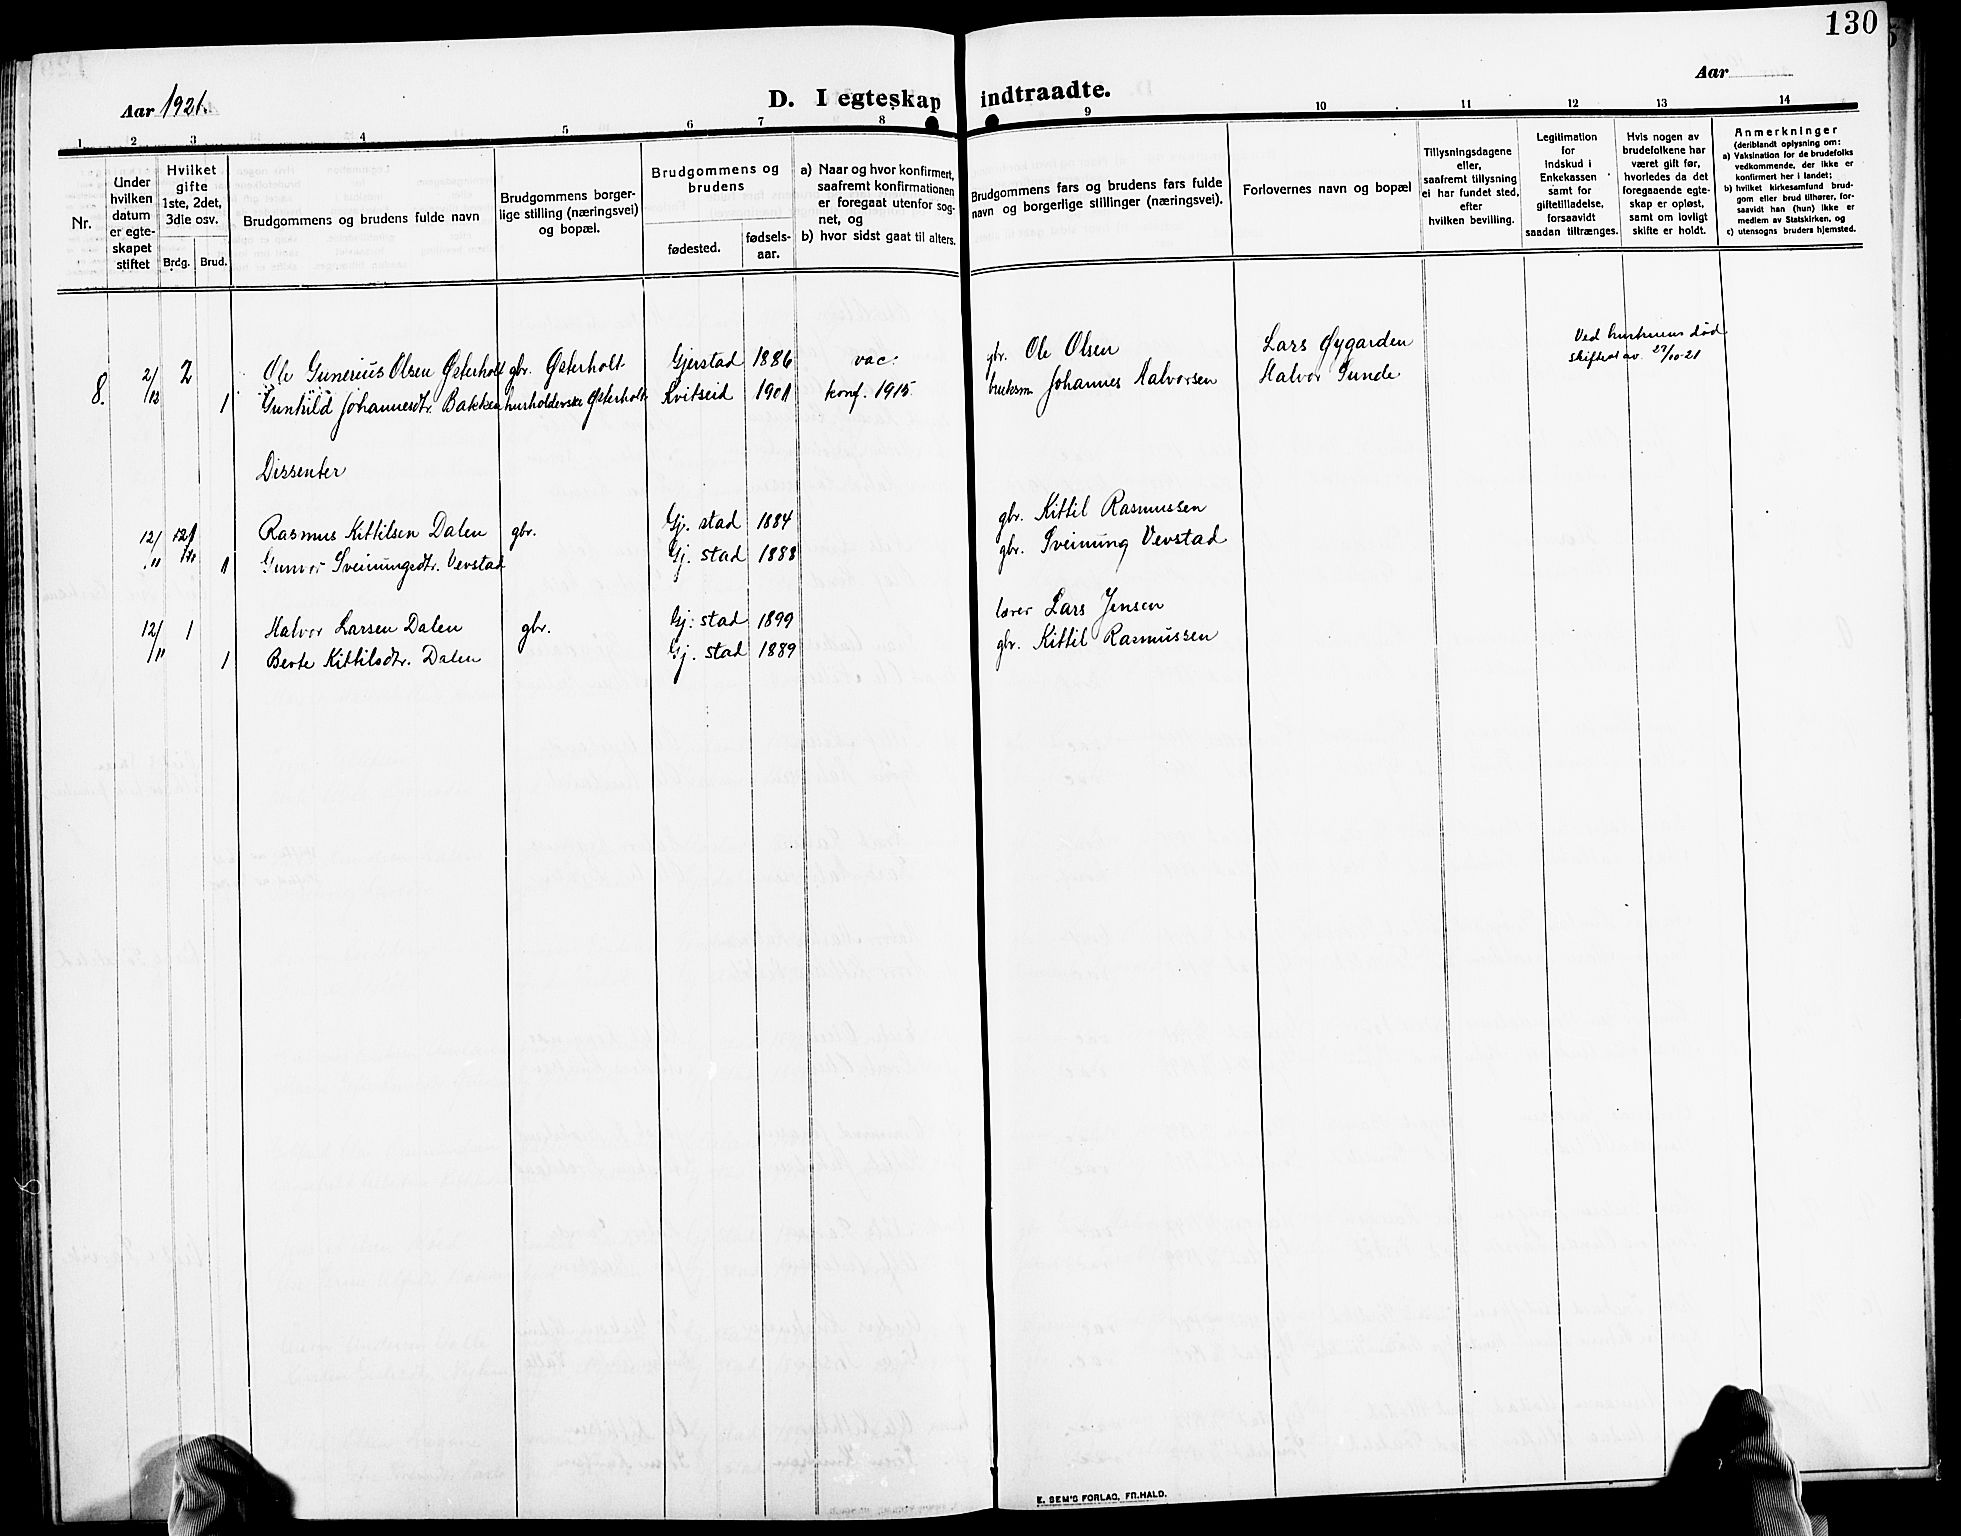 130
Aar 1921.
D. I egteskap indtraadte.
Aar
1 2 3 4 5 6 7 8 9 10 11 12 13 14
Nr.
Under hvilken datum er egteskapet stiftet
Hvilket gifte 1ste, 2det, 3dle osv.
Brdg. Brud.
Brudgommens og brudens fulde navn
Brudgommens borgerlige stilling (næringsvei) og bopæl.
Brudgommens og brudens
fødested.
fødselsaar.
a) Naar og hvor konfirmert, saafremt konfirmationen er foregaat utenfor sognet, og
b) hvor sidst gaat til alters.
Brudgommens fars og brudens fars fulde navn og borgerlige stillinger (næringsvei).
Forlovernes navn og bopæl
Tillysningsdagene eller, saafremt tillysning ei har fundet sted, efter hvilken bevilling.
Legitimation for indskud i Enkekassen samt for giftetilladelse, forsaavidt saadan tiltrænges.
Hvis nogen av brudefolkene har været gift før, hvorledes da det foregaaende egteskap er opløst, samt om lovligt skifte er holdt.
Anmerkninger (deriblandt oplysning om:
a) Vaksination for de brudefolks vedkommende, der ikke er konfirmert her i landet;
b) hvilket kirkesamfund brudgom eller brud tilhører, forsaavidt han (hun) ikke er medlem av Statskirken, og
c) utensogns bruders hjemsted.
8. 2/12 2 Ole Gunerius Olsen Østerholt gbr. Østerholt Gjerstad 1886 vac. gbr. Ole Olsen Lars Øygarden Ved hustruens død
1 Gunhild Johannesdtr. Bakken husholderske Østerholt Kvitseid 1901 konf. 1915 bruksm. Johannes Halvorsen Halvor Sunde skifteat av. 27/10-21
Dissenter
12/11 1 Rasmus Kittilsen Dalen gbr. Gj. stad 1884 gbr. Kittil Rasmussen
1 Gunvor Sveinungsdtr. Vevstad Gj. stad 1888 gbr. Sveinung Vevstad
12/11 1 Halvor Larsen Dalen gbr. Gj. stad 1899 lærer Lars Jensen
1 Berte Kittilsdtr. Dalen Gj. stad 1889 gbr. Kittil Rasmussen
E. SEM'S FORLAG, FR.HALD.